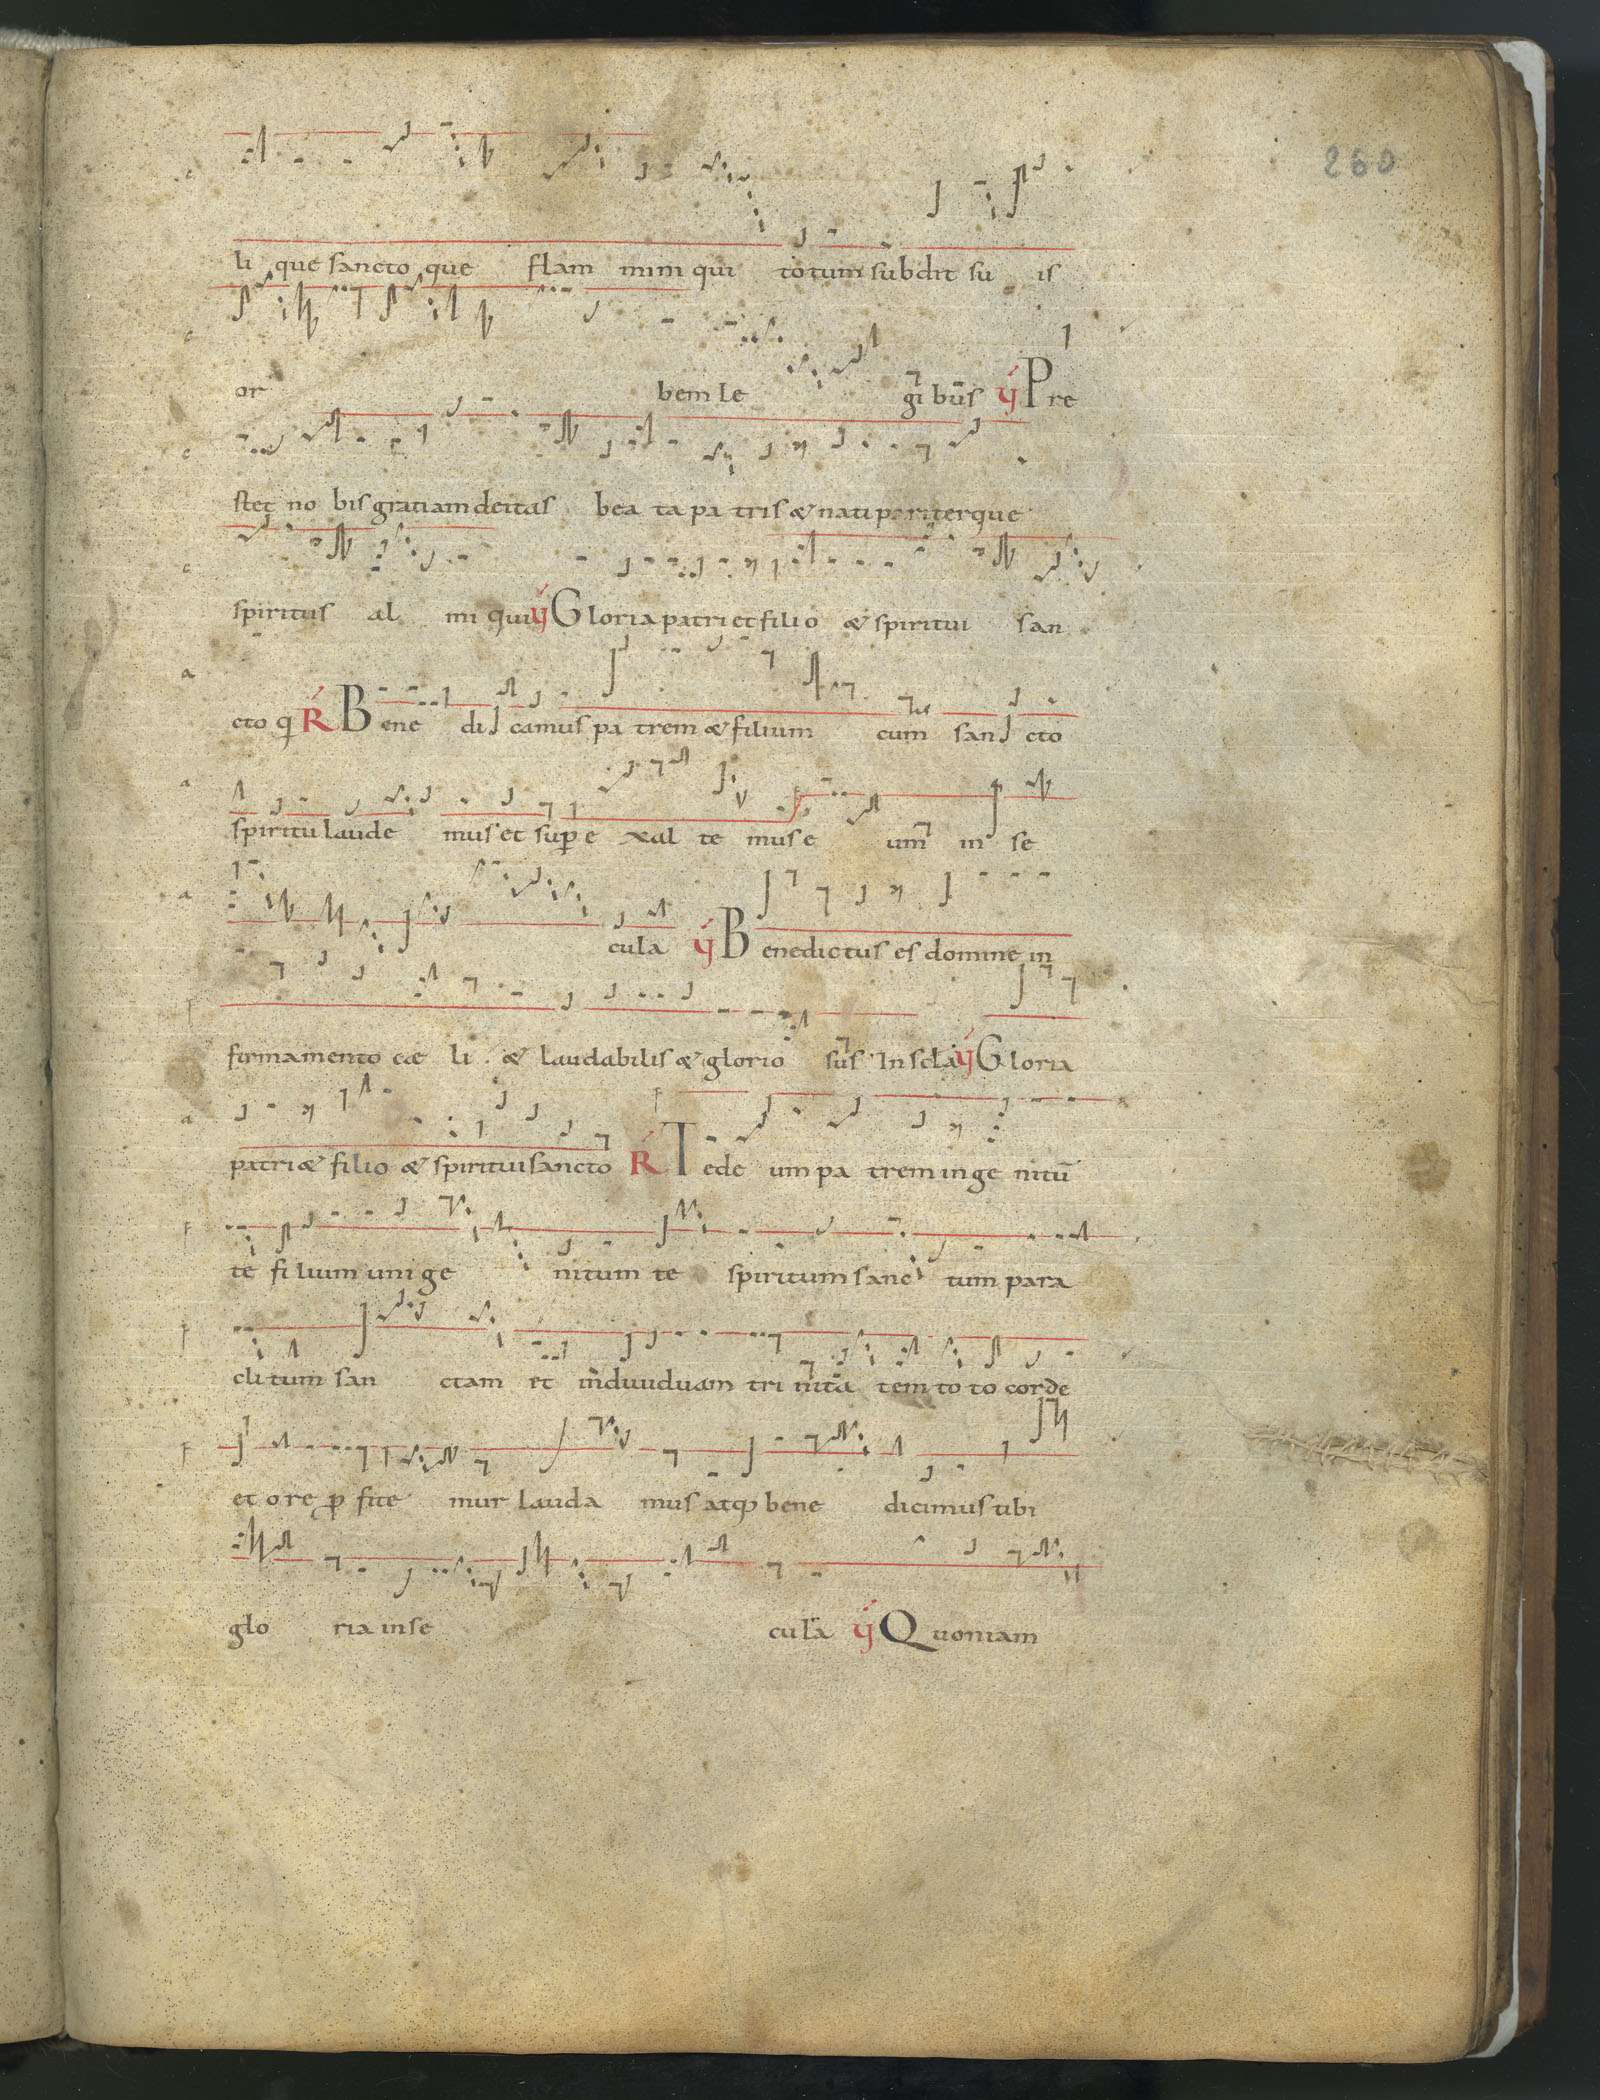 260
li que sancto que flam mini qui totum subdit su is
or bem le gi bus ℣ Pre
stet no bis gratiam deitas bea ta pa tris & nati pariterque
spiritus al mi qui ℣ Gloria patri et filio & spiritui san
cto q ℟ Bene di camus pa trem & filium cum san cto
spiritu laude mus et supe xal te mus e um in se
cula ℣ Benedictus es domine in
firmamento cae li & laudabilis & glorio sus In scla ℣ Gloria
patri & filio & spiritui sancto ℟ Te de um pa trem in ge nitū
te filium uni ge nitum te spiritum sanc tum para
cli tum san ctam et induiduam tri nita tem to to corde
et ore p fite mur lauda mus atq bene dicimus tibi
glo ria in se cula ℣ Quoniam